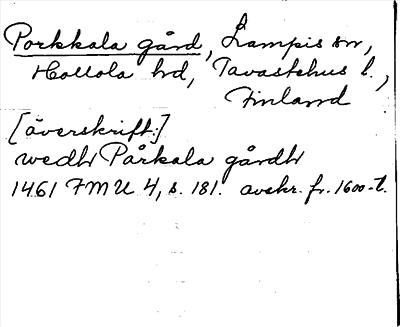 Porkkala gård, Lampis sn,
Hollola hd, Tavastehus l.,
Finland
[överskrift:]
wedh Pårkala gårdh
1461 FMU 4, s. 181. avskr. fr. 1600-t.